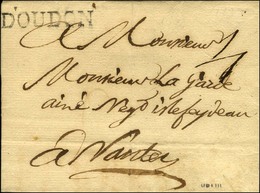 D'OUDON
A Monsieur
Monsieur La Garde
ainé Neg.t islefeydeau
a Nantes